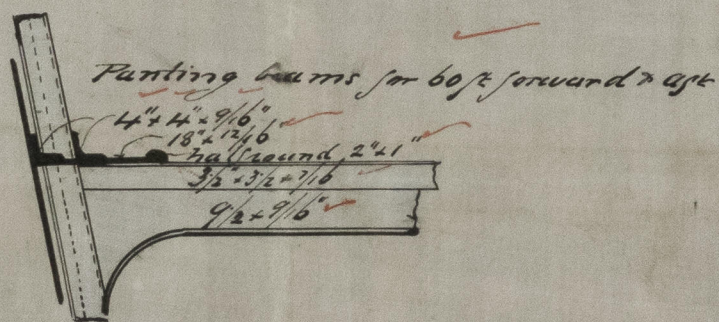 Panting beams for 60ft forward & aft
4" + 4" + 9/16"
18" + 12/16"
half round 2" + 1"
3 1/2" + 3 1/2 + 7/16
9 1/2 + 9/16"